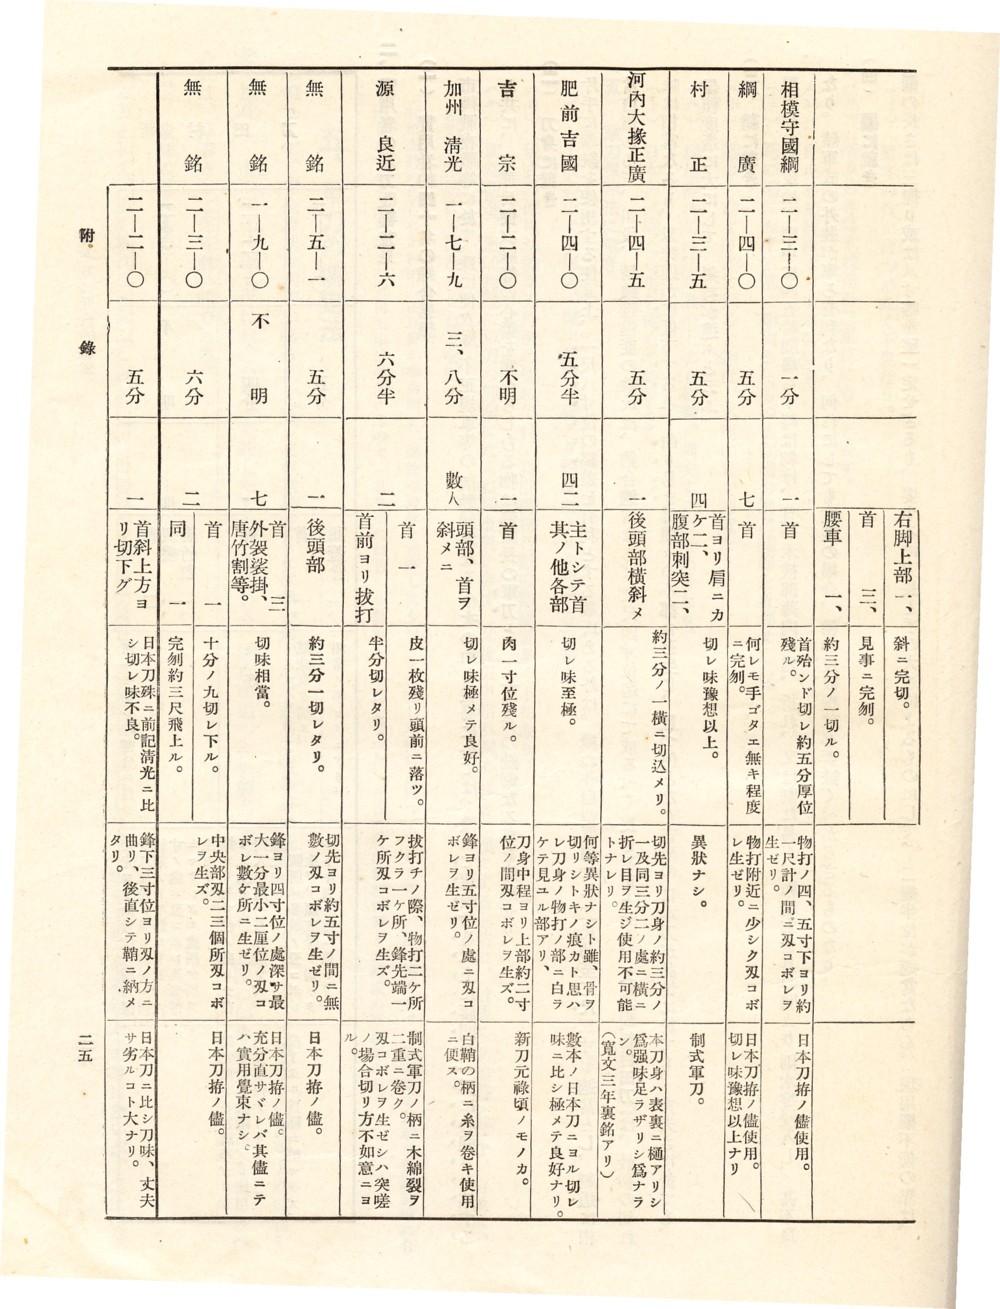 右脚上部 一、
斜ニ完切。
首 三、
見事ニ完刎。
腰車 一、
約三分ノ一切ル。
相模守國綱
二―三―〇
一分
一
首
首殆ンド切レ約五分厚位
殘ル。
物打ノ四、五寸下ヨリ約
一尺計ノ間ニ刄コボレヲ
生ゼリ。
日本刀拵ノ儘使用。
綱廣
二―四―〇
五分
七
首
何レモ手ゴタエ無キ程度
ニ完刎。
物打附近ニ少シク刄コボ
レ生ゼリ。
日本刀拵ノ儘使用。
切レ味豫想以上ナリ
村正
二―三―五
五分
四
首ヨリ肩ニカ
ケ二、
腹部刺突二、
切レ味豫想以上。
異狀ナシ。
制式軍刀。
河內大掾正廣
二―四―五
五分
一
後頭部橫斜メ
約三分ノ一橫ニ切込メリ。
切先ヨリ刀身ノ約三分ノ
一及同三分二ノ處ニ橫ニ
折レ目ヲ生ジ使用不可能
トナレリ。
本刀身ハ表裏ニ樋アリシ
爲强味足ラザリシ爲ナラ
ン。
(寬文三年裏銘アリ)
肥前吉國
二―四―〇
五分半
四二
主トシテ首
其ノ他各部
切レ味至極。
何等異狀ナシト雖、骨ヲ
切リシトキノ痕カト思ハ
レ刀身ノ物打ノ部ニ白ラ
ケテ見ユル部アリ、
數本ノ日本刀ニヨル切レ
味ニ比シ極メテ良好ナリ。
吉宗
二―二―〇
不明
一
首
肉一寸位殘ル。
刀身中程ヨリ上部約二寸
位ノ間刄コボレヲ生ズ。
新刀元祿頃ノモノカ。
加州 淸光
一―七―九
三、八分
數人
頭部、首ヲ
斜メニ
切レ味極メテ良好。
鋒ヨリ五寸位ノ處ニ刄コ
ボレヲ生ゼリ。
白鞘の柄ニ糸ヲ卷キ使用
ニ便ス。
源良近
二―二―六
六分半
二
首 一
皮一枚殘リ頭前ニ落ツ。
首前ヨリ拔打
半分切レタリ。
拔打チノ際、物打二ケ所
フクラ一ケ所、鋒先端一
ケ所刄コボレヲ生ズ。
制式軍刀ノ柄ニ木綿裂ヲ
二重ニ卷ク。
刄コボレヲ生ゼシハ突嗟
ノ場合切リ方不如意ニヨ
ル。
無銘
二―五―一
五分
一
後頭部
約三分一切レタリ。
切先ヨリ約五寸ノ間ニ無
數ノ刄コボレヲ生ゼリ。
日本刀拵ノ儘。
無銘
一―九―〇
不明
七
首 三
外袈裟掛、
唐竹割等。
切味相當。
鋒ヨリ四寸位ノ處深サ最
大一分最小二厘位ノ刄コ
ボレ數ケ所ニ生ゼリ。
日本刀拵ノ儘。
充分直サヾレバ其儘ニテ
ハ實用覺束ナシ。
無銘
二―三―〇
六分
二
首 一
十分ノ九切レ下ル。
同 一
完刎約三尺飛上ル。
中央部刄二三個所刄コボ
レヲ生ズ。
日本刀拵ノ儘。
二―二―〇
五分
一
首斜上方ヨ
リ切下グ
日本刀殊ニ前記淸光ニ比
シ切レ味不良。
鋒下三寸位ヨリ刄ノ方ニ
曲リ、後直シテ鞘ニ納メ
タリ。
日本刀ニ比シ刀味、丈夫
サ劣ルコト大ナリ。
附錄
二五